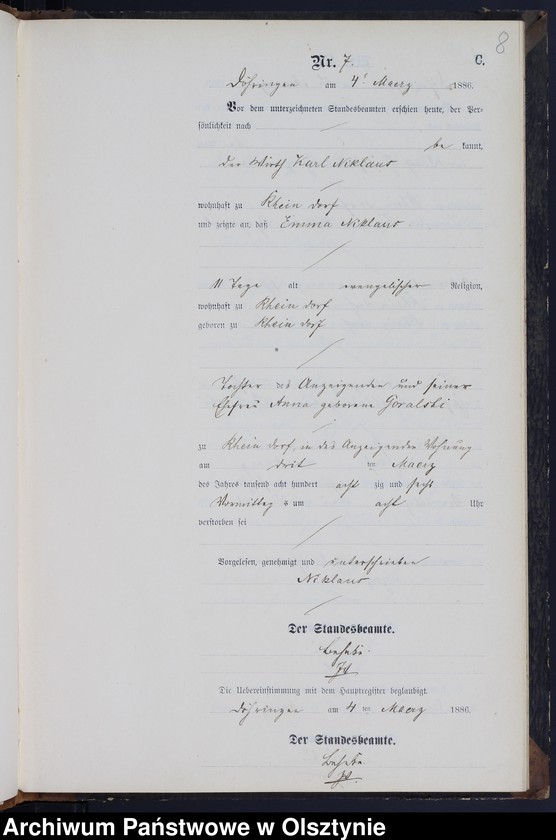 8
Nr. 7. C.
Döhringen am 4t Maerz 1886.
Vor dem unterzeichneten Standesbeamten erschien heute, der Per-
sönlichkeit nach
be kannt,
der Wirth Karl Niklaus
wohnhaft zu Rhein dorf
und zeigte an, daß Emma Niklaus
11 Tage alt evangelischer Religion,
wohnhaft zu Rhein dorf
geboren zu Rhein dorf
Tochter des Anzeigenden und seiner
Ehefrau Anna geborene Goralski
zu Rhein dorf, in des Anzeigenden Wohnung
am drit ten Maerz
des Jahres tausend acht hundert acht zig und sechs
Vormittag s um acht Uhr
verstorben sei
Vorgelesen, genehmigt und unterschrieben
Niklaus
Der Standesbeamte.
Die Uebereinstimmung mit dem Hauptregister beglaubigt.
Döhringen am 4 ten Maerz 1886.
Der Standesbeamte.
Archiwum Państwowe w Olsztynie